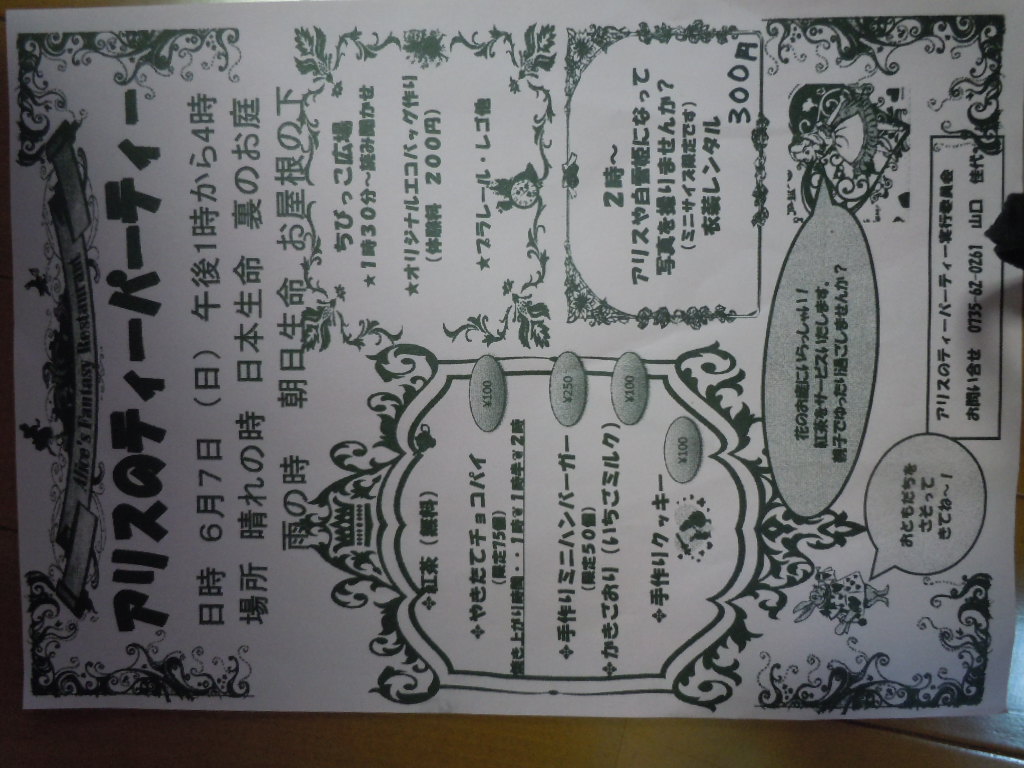 Alice's Fantasy Restaurant
アリスのティーパーティー
日時 6月7日（日）午後1時から4時
場所 晴れの時 日本生命 裏のお庭
雨の時 朝日生命 お屋根の下
✣紅茶（無料）
✣やきたてチョコパイ
¥100
（限定75個）
焼き上がり時間・1時半2時
✣手作りミニハンバーガー
¥250
（限定50個）
✣かきごおり（いちごミルク）
¥100
✣手作りクッキー
¥100
ちびっこ広場
★1時30分〜読み聞かせ
★オリジナルエコバッグ作り
（体験料 200円）
★プラレール・レゴ他
2時〜
アリスや白雪姫になって
写真を撮りませんか？
（ミニサイズ限定です）
衣装レンタル
300円
花のお庭にいらっしゃい！
紅茶をサービスいたします。
親子でゆったり過ごしませんか？
おともだちを
さそって
きてね〜！
アリスのティーパーティー実行委員会
お問い合せ 0735-62-0261 山口 佳代